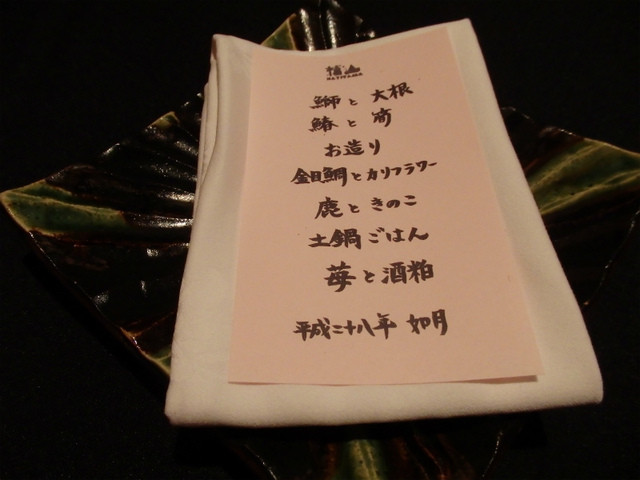 鰤と大根
鰆と
お造り
金目鯛とカリフラワー
鹿ときのこ
土鍋ごはん
苺と酒粕
平成二十八年 如月